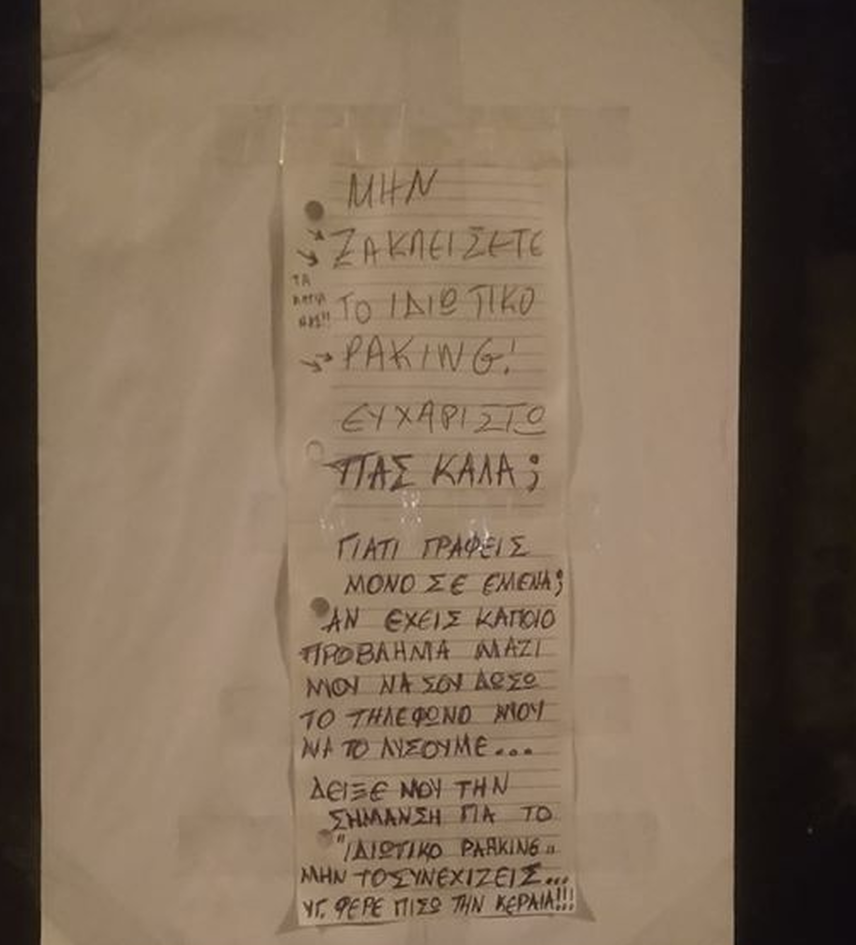 ΜΗΝ
ΖΑΚΛΕΙΣΕΤΕ
ΤΑ
ΝΑΙ!!
ΤΟ ΙΔΙΩΤΙΚΟ
PAKING!
ΕΥΧΑΡΙΣΤΩ
ΠΑΣ ΚΑΛΑ;
ΓΙΑΤΙ ΓΡΑΦΕΙΣ
ΜΟΝΟ ΣΕ ΕΜΕΝΑ;
ΑΝ ΕΧΕΙΣ ΚΑΠΟΙΟ
ΠΡΟΒΛΗΜΑ ΜΑΖΙ
ΜΟΥ ΝΑ ΣΟΥ ΔΩΣΩ
ΤΟ ΤΗΛΕΦΩΝΟ ΜΟΥ
ΝΑ ΤΟ ΛΥΣΟΥΜΕ...
ΔΕΙΞΕ ΜΟΥ ΤΗΝ
ΣΗΜΑΝΣΗ ΓΙΑ ΤΟ
"ΙΔΙΩΤΙΚΟ PARKING"
ΜΗΝ ΤΟ ΣΥΝΕΧΙΖΕΙΣ...
ΥΓ. ΦΕΡΕ ΠΙΣΩ ΤΗΝ ΚΕΡΑΙΑ!!!